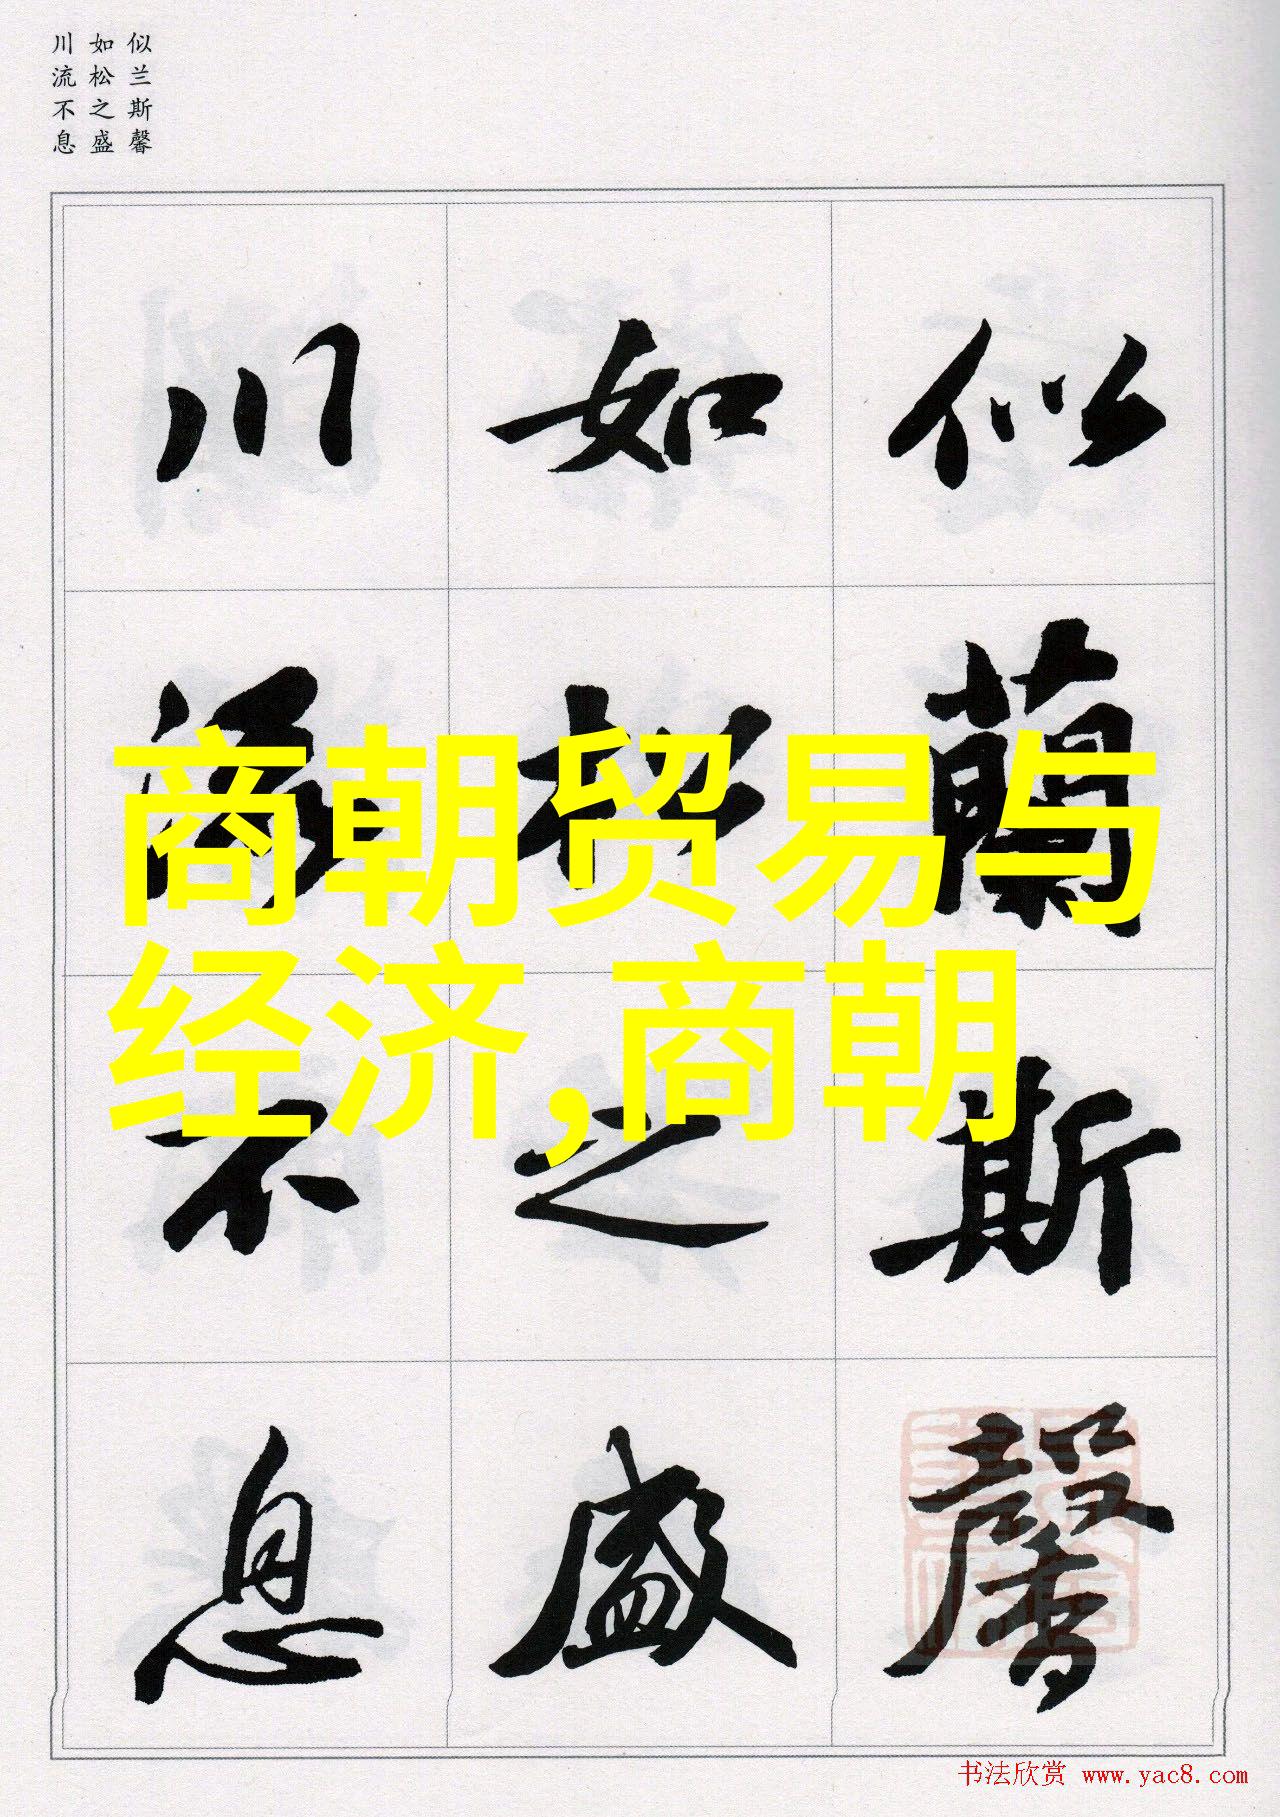 似兰斯馨
如松之盛
川流不息
似蘭斯馨
如松之盛
川流不息
商朝贸易与
经济,商朝
书法欣赏 www.yac8.com